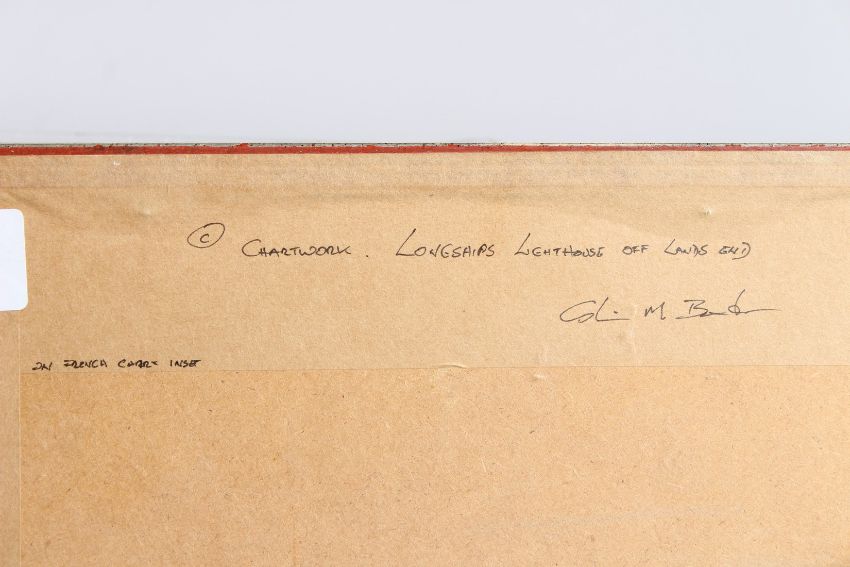 © CHARTWORK. LONGSHIPS LIGHTHOUSE OFF LANDS END
Colin M
ON FRENCH CHART INSET